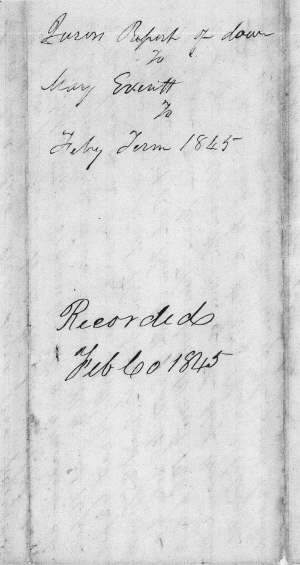 Jurors Report of dower
To
Mary Everitt
To
Feby Term 1845
Recorded
Feb 60 1845